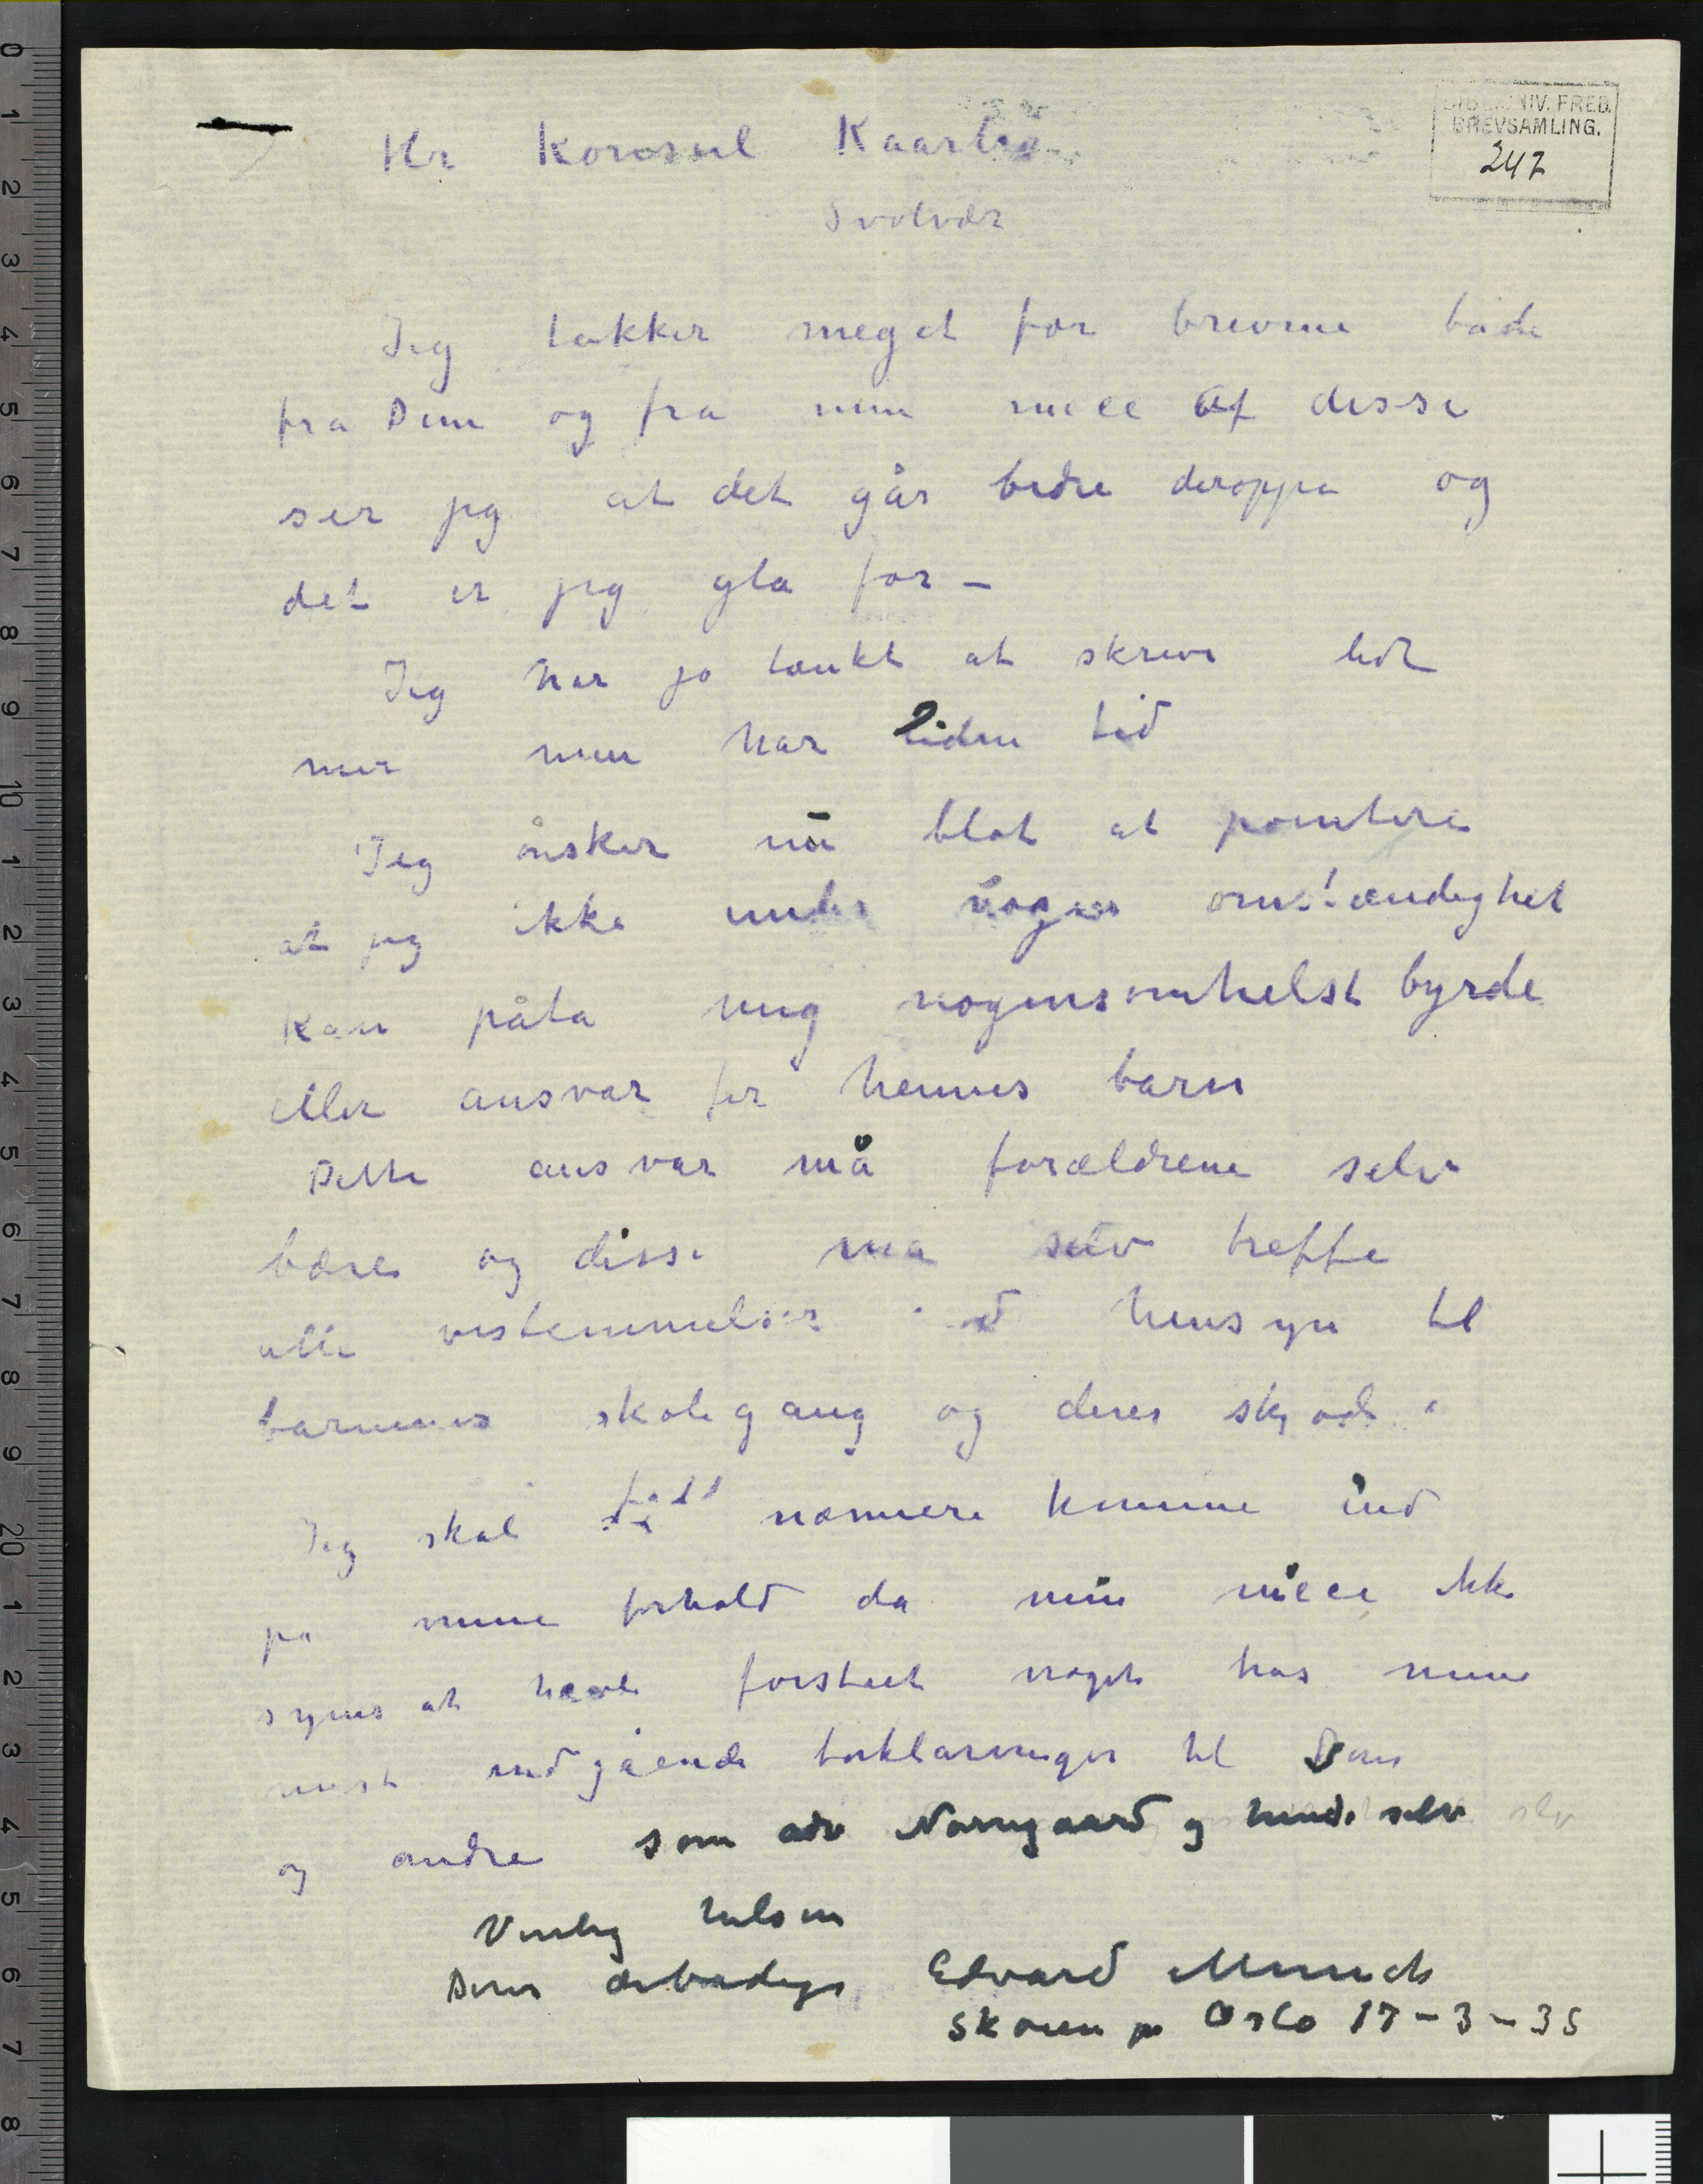 BIBL. UNIV. FRED.
BREVSAMLING.
247
Hr Konsul Kaarbø
Svolvær
Jeg takker meget for brevene både
fra Dem og fra min niece Af disse
ser jeg at det går bedre deroppe og
det er jeg gla for –
Jeg har jo tænkt at skrive lidt
mer men har liden tid
Jeg ønsker nå blot at pointere
at jeg ikke under nogen omstændighet
kan påta meg nogensomhelst byrde
eller ansvar for hennes barn
Dette ansvar må forældrene selv
bære og disse må selv treffe
alle bestemmelser hensyn til
barnenes skolegang og deres
Jeg skal nærmere komme ind
på mine forhold da min niece ikke
synes at have forståt noget has mine
mest indgående forklaringer til Dem
og andre som adv Nørregaard og hende selv
Venlig hilsen
Deres ærbødige Edvard Munch
Skøien pr Oslo 17-3-35